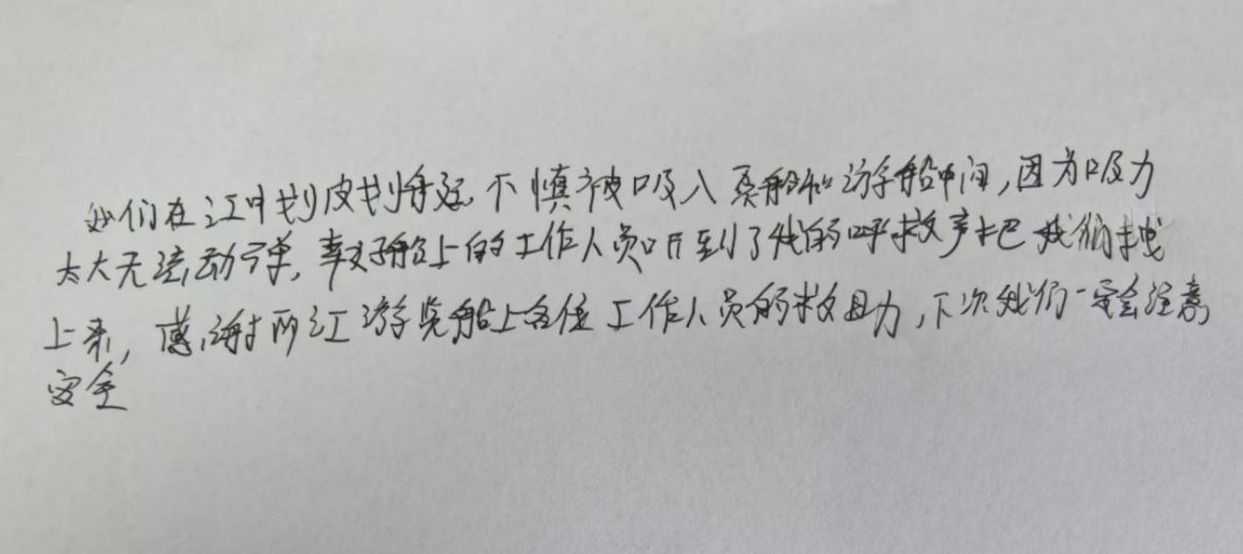 我们在江中划皮划艇 不慎被吸入趸船和游船中间,因为吸力
太大无法动弹,幸好船上的工作人员听到了我的呼救声把我们拽
上来,感谢两江游览船上各位工作人员的救助,下次我们一定会注意
安全